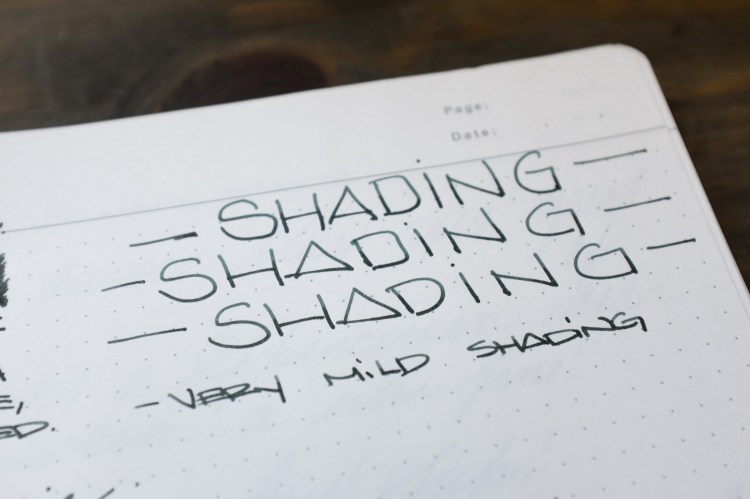 Page:
Date:
— SHADiNG —
— SHADiNG —
— SHADiNG —
- VERY MiLD SHADiNG
E,
ED.